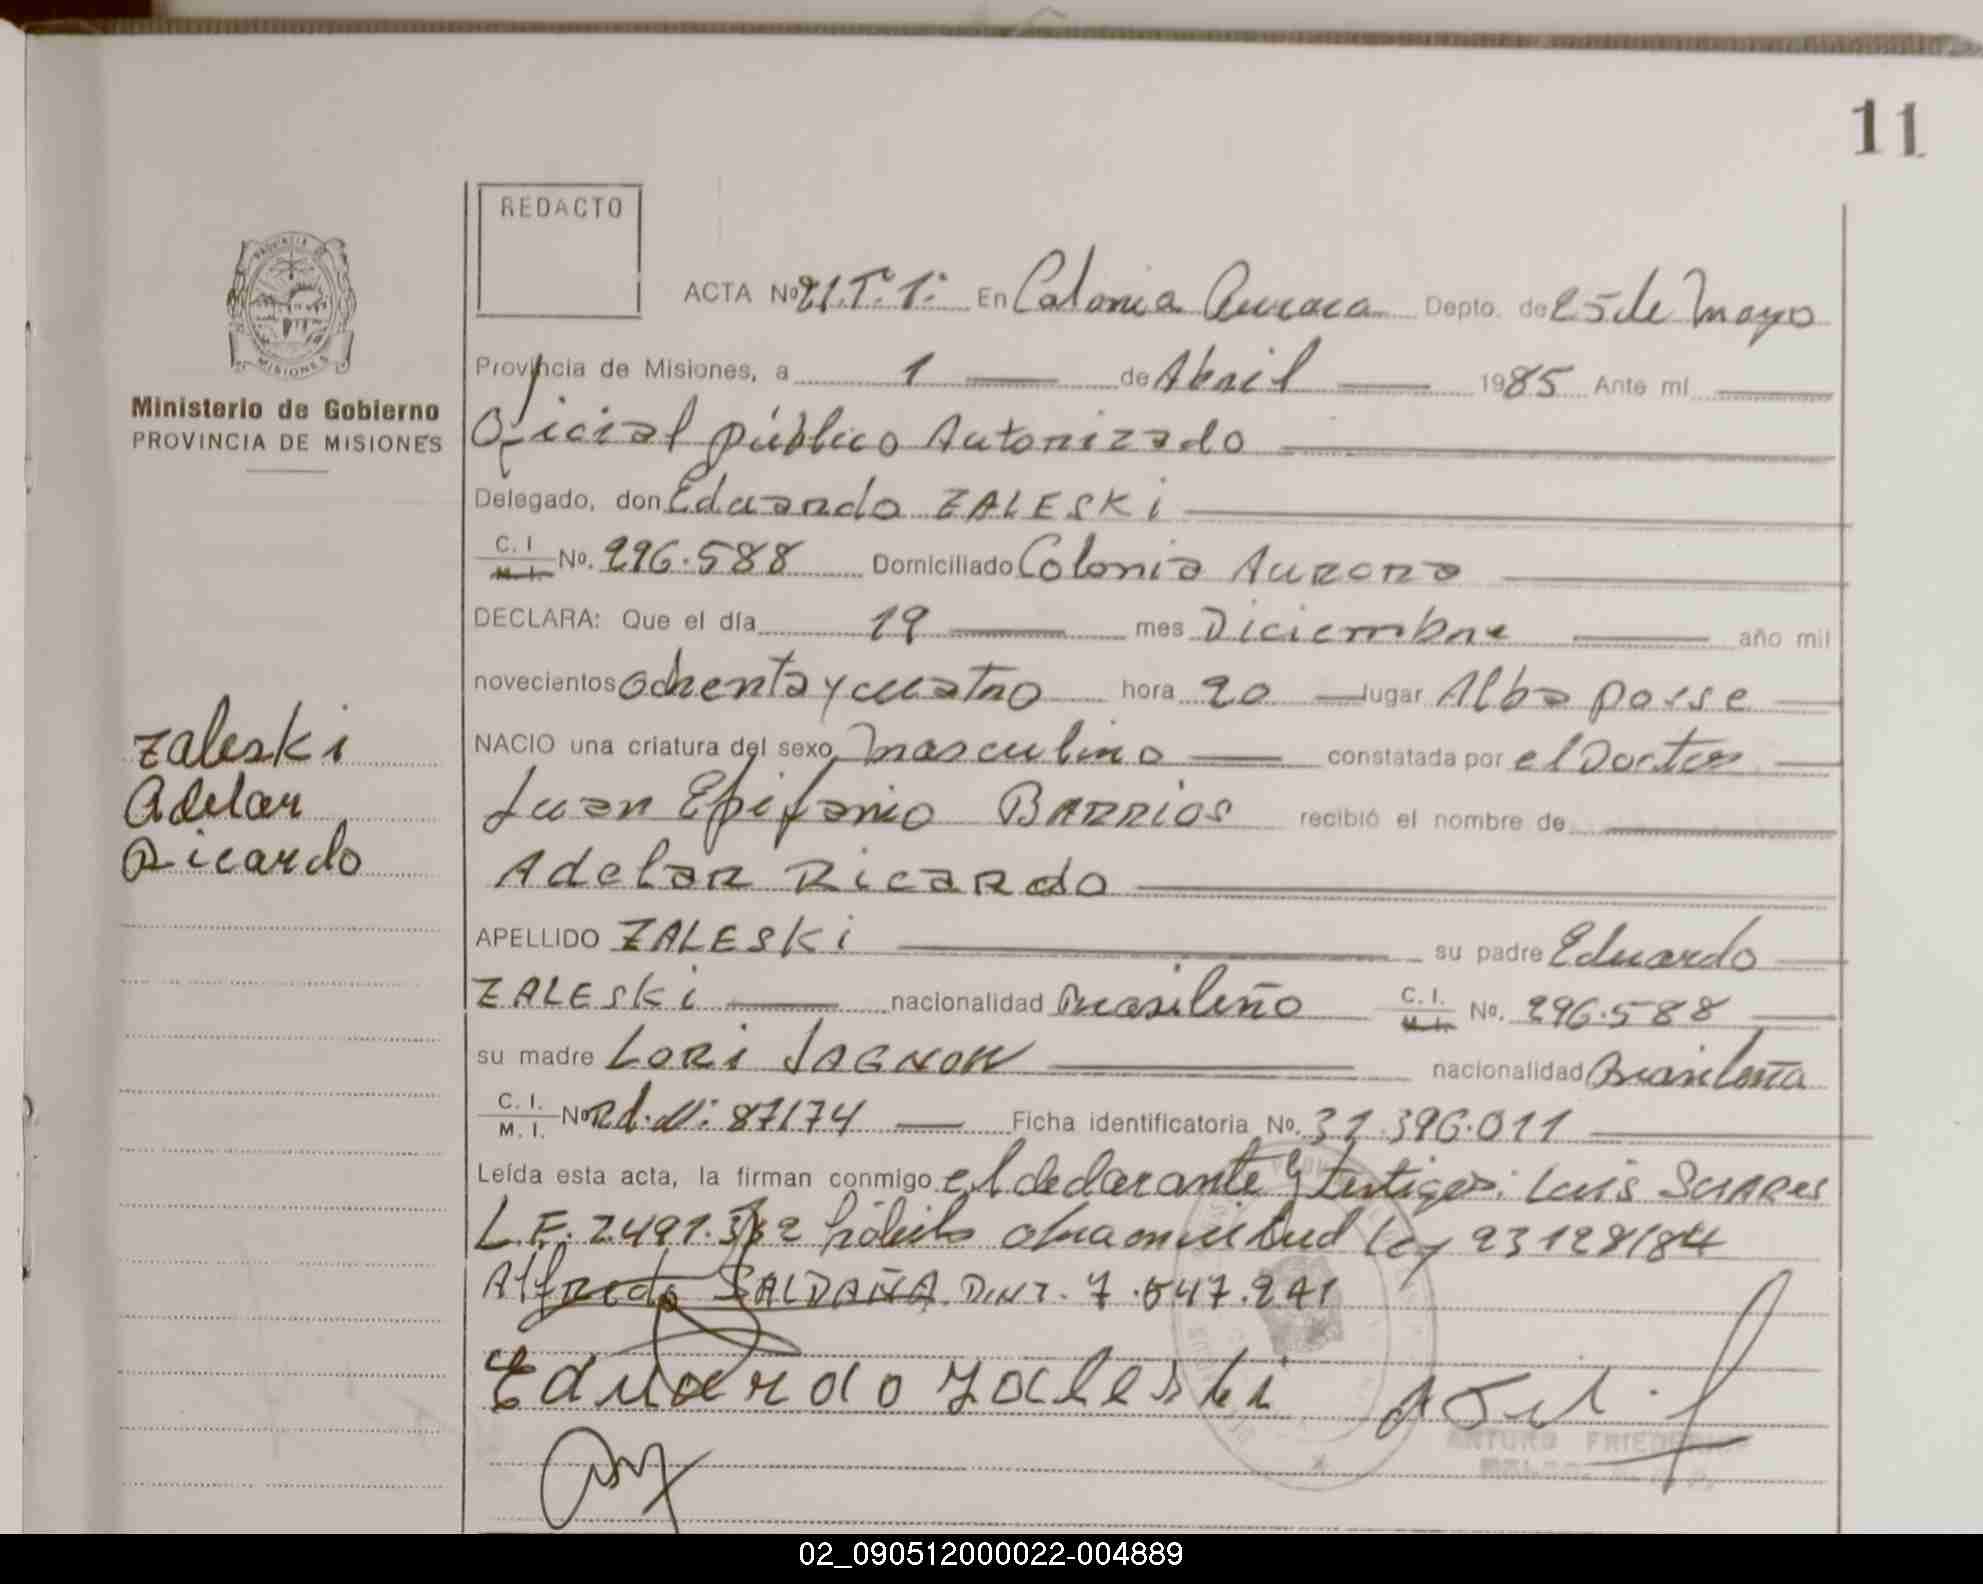 11
REDACTO
PROVINCIA DE
MISIONES
Ministerio de Gobierno
PROVINCIA DE MISIONES
Zaleski
Adelar
Ricardo
ACTA No 21.Tº1º En Colonia Aurora Depto. de 25 de Mayo
Provincia de Misiones, a 1 de Abril 1985 Ante mí
Oficial público Autorizado
Delegado, don Eduardo ZALESKi
C. I. M. I. No. 296.588 Domiciliado Colonia Aurora
DECLARA: Que el día 19 mes Diciembre año mil
novecientos ochenta y cuatro hora 20 lugar Alba posse
NACIO una criatura del sexo Masculino constatada por el Doctor
Juan Epifanio BARRIOS recibió el nombre de
Adelar Ricardo
APELLIDO ZALESKi su padre Eduardo
ZALESKi nacionalidad Brasileño C. I. M. I. No. 296.588
su madre LORi JAGNOW nacionalidad Brasileña
C. I. M. I. No Rd.Nº 87174 Ficha identificatoria No. 31.396.011
Leída esta acta, la firman conmigo el declarante y testigos: Luis SUARes
L.E. 2.491. Ley 23128/84
Alfredo SALDAÑA D.N.I. 7.547.241
Eduardo Zaleski
ARTURO
02_090512000022-004889